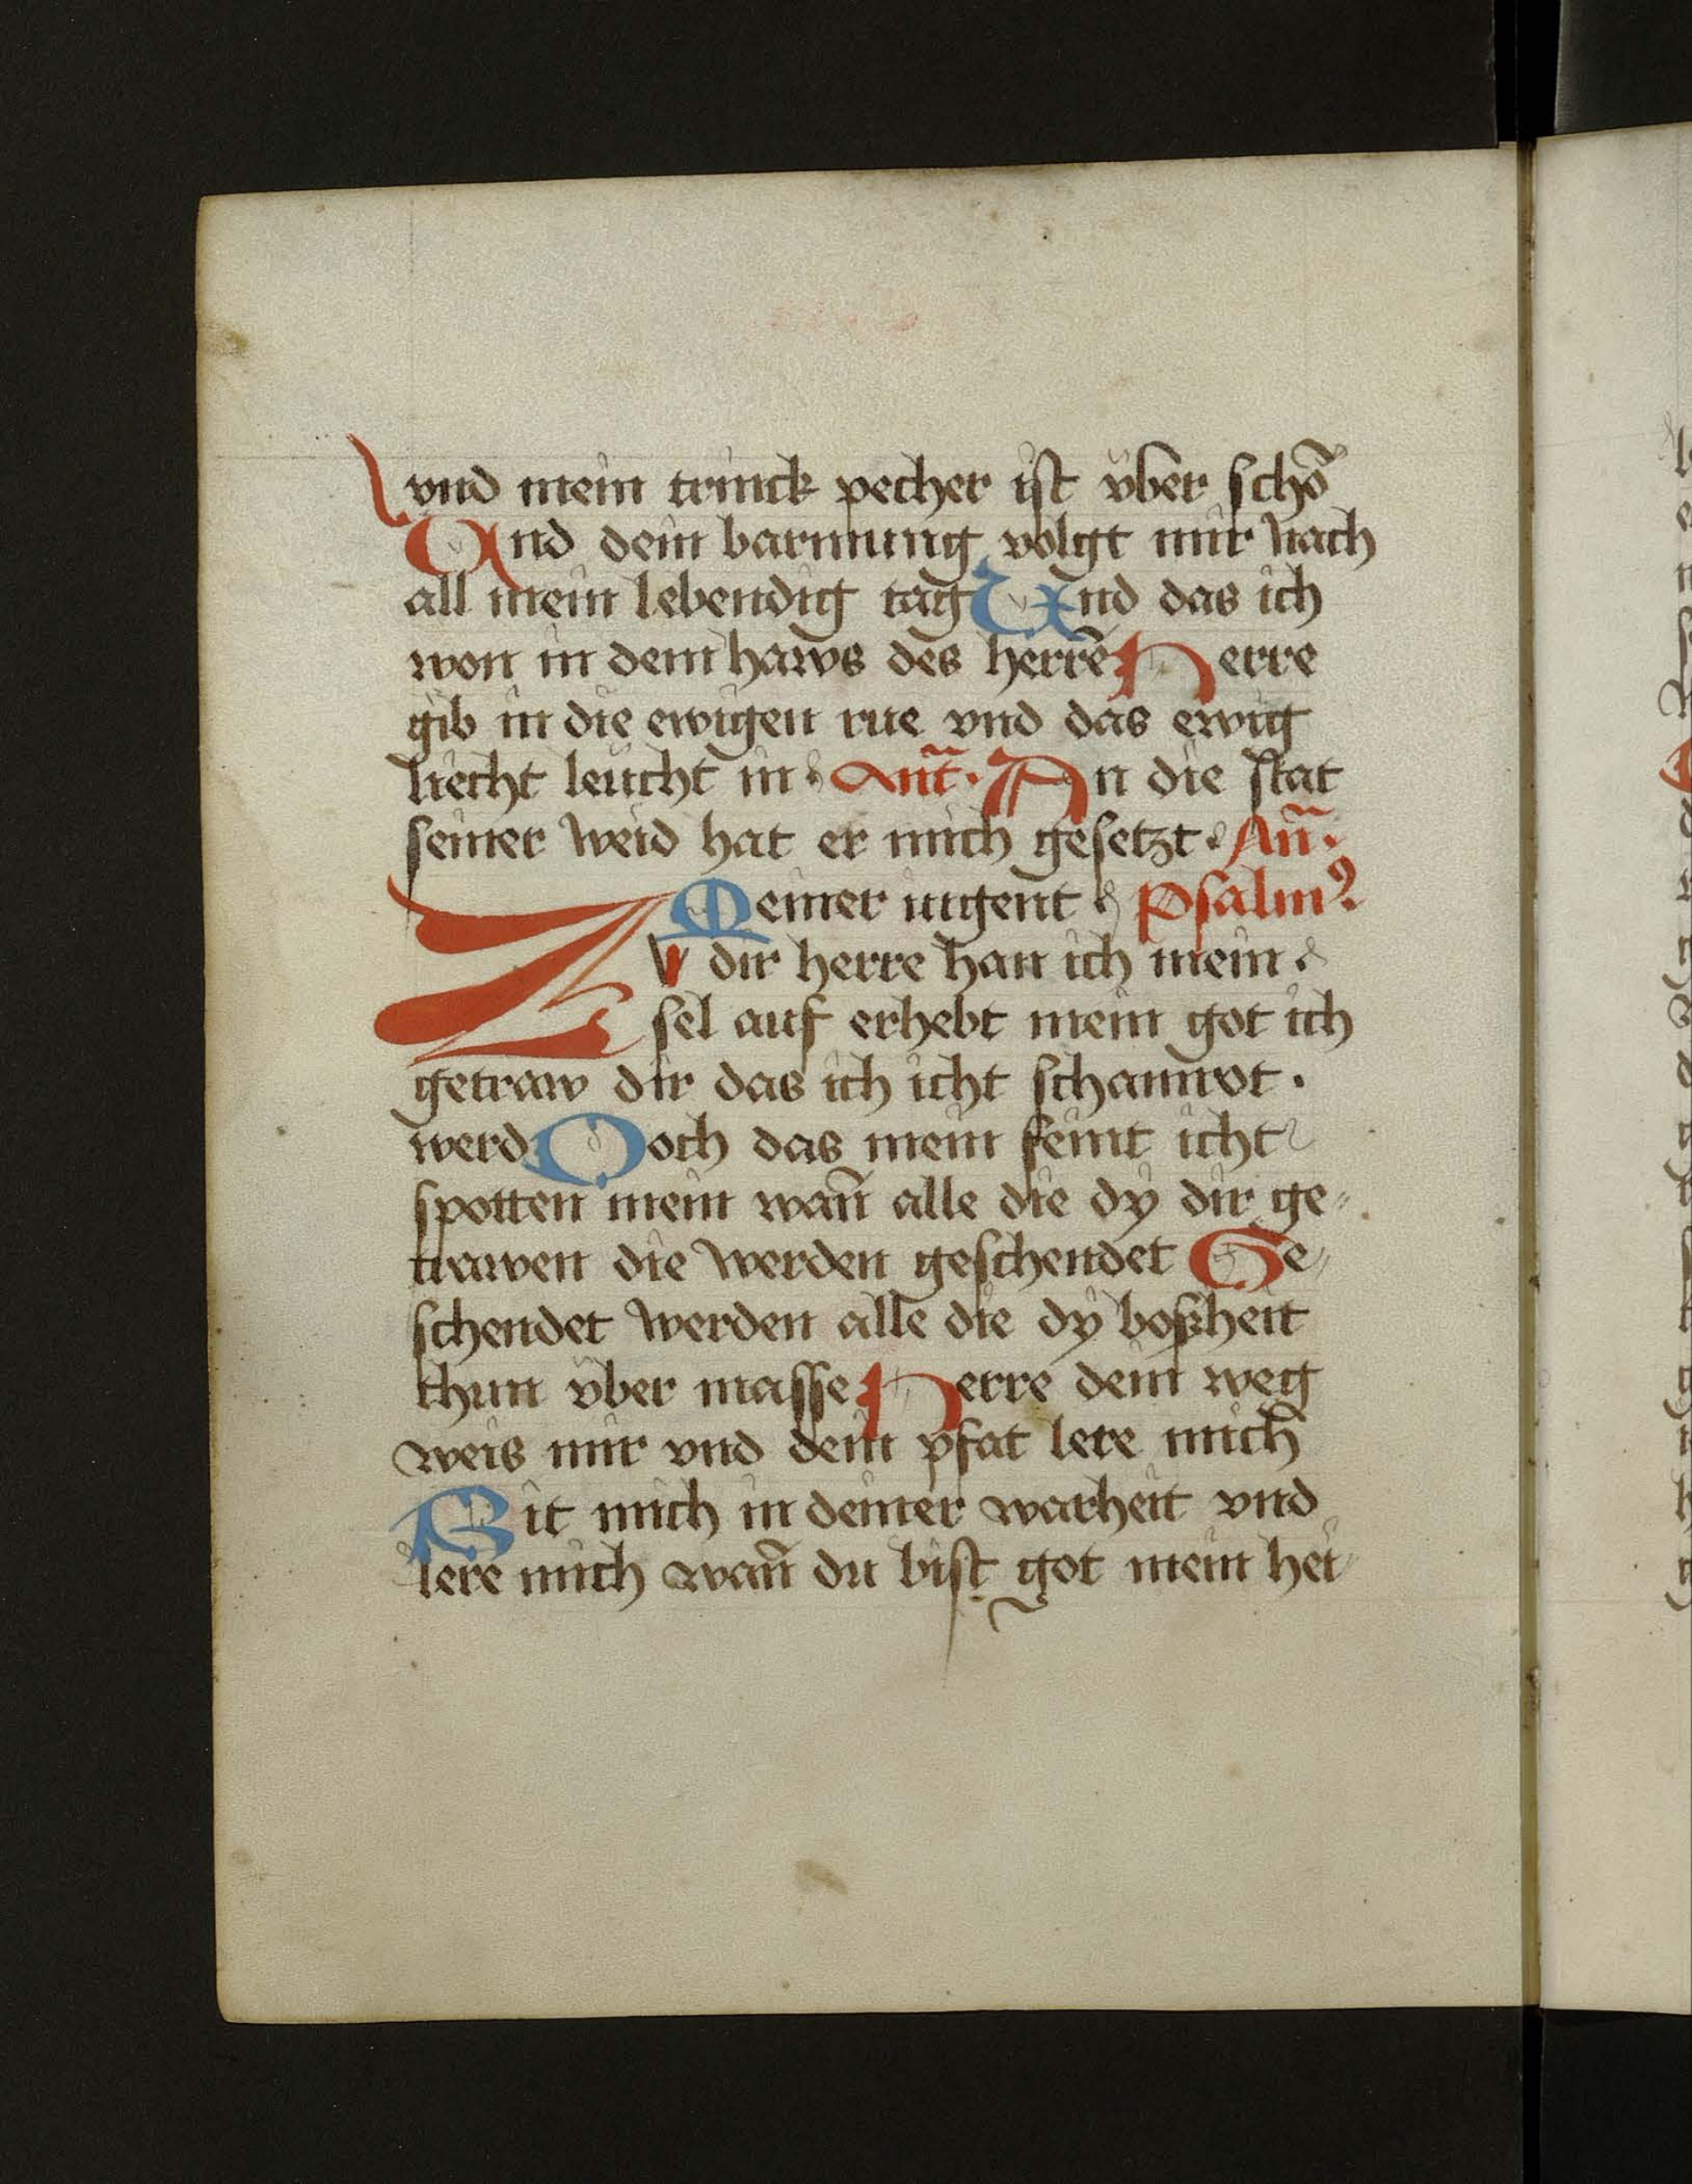 vnd mein trinck pecher ist vber schō
Vnd dein barmung volgt mir nach
all mein lebendig tag Vnd das ich
won in dem haws des herrē Herre
gib in die ewigen rue vnd das ewig
liecht leucht in Ant̄. An die stat
seiner weid hat er mich gesetzt An̄.
Meiner iugent Psalmꝰ
Zv dir herre han ich mein
sel auf erhebt mein got ich
getraw dir das ich icht schamrot.
werd Noch das mein feint icht
spotten mein wan̄ alle die dÿ dir ge-
trawen die werden geschendet Ge-
schendet werden alle die dÿ boßheit
thun vber masse Herre dein weg
weis mir vnd dein pfat lere mich
Rit mich in deiner warheit vnd
lere mich wan̄ du bist got mein hei-